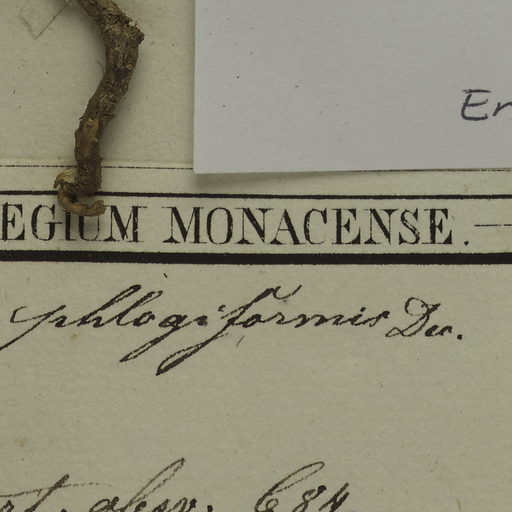 Er
EGIUM MONACENSE.
phlogiformis Du.
rt. ahw. 684